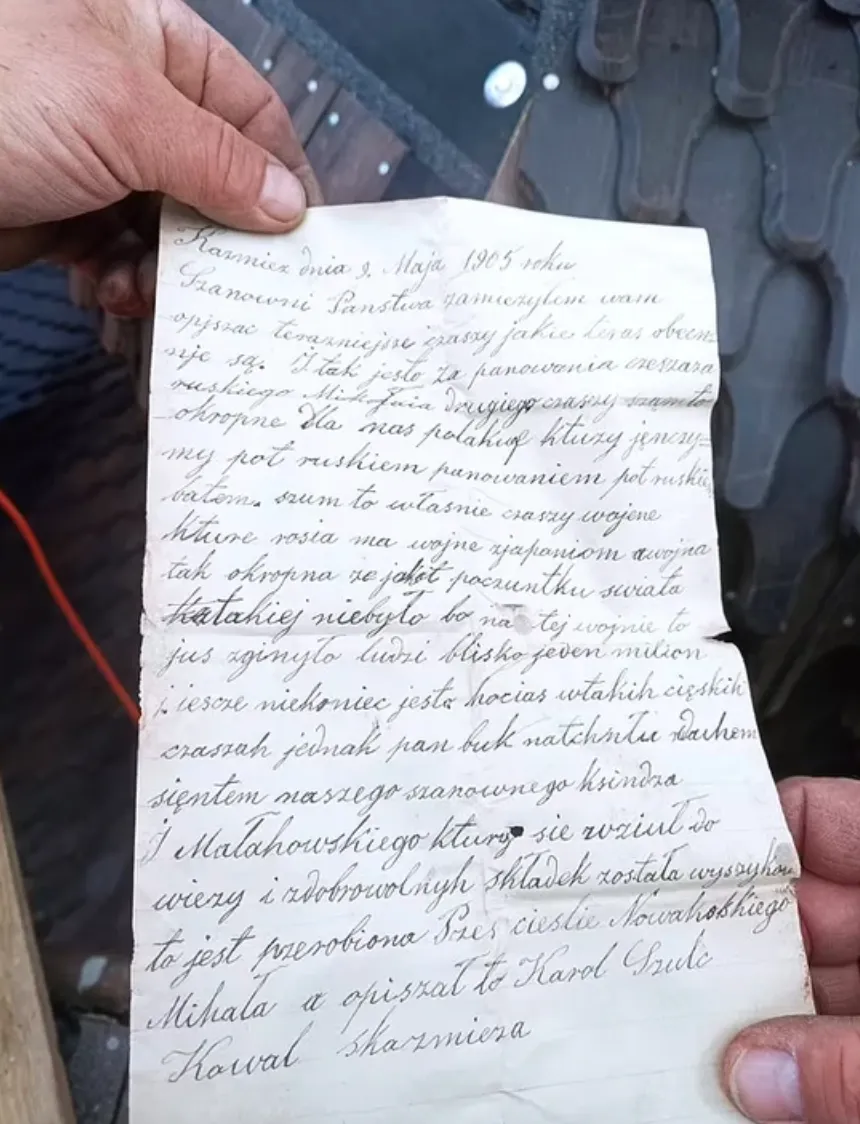 Kazmiez dnia 9. Maja 1905 roku
Szanowni Panstwa zamiezylem wam
opjszac terazniejsze czaszy jakie teras obecz
nje są. I tak jesto za panowania czeszaza
ruskiego Mikołaia drugiego czaszy szam to
okropne dla nas polakuf ktuzy jęnczy=
my pot ruskiem panowaniem pot ruskie
batem. szum to własnie czaszy wojene
kture rosia ma wojne zjaponiom a wojna
tak okropna ze jak ot poczuntku swiata
takiej niebyło bo na tej wojnie to
jus zginyło ludzi blisko jeden milion
i iescze niekoniec jesta hocias wtakih cięskih
czaszah jednak pan buk natchnłu duchem
sięntem naszego szanownego ksindza
J Małahowskiego ktury sie wziuł do
wiezy i zdobrowolnyh składek została wyszykow
to jest pzerobiona Pzes cieslie Nowakoskiego
Mihała a opiszał to Karol Szulc
Kowal skazmieza